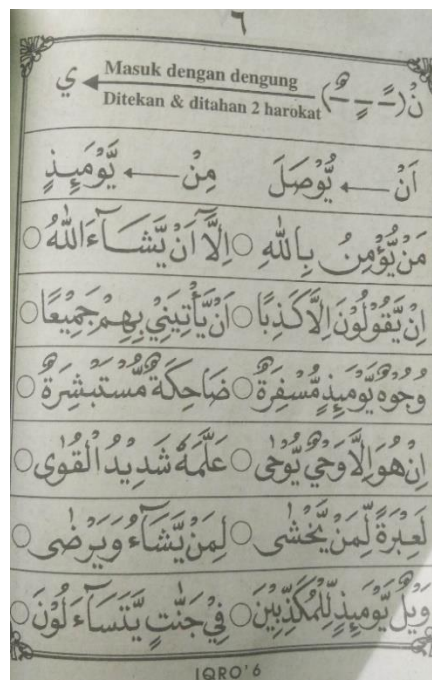 ٦
نْ (ـًـ ـٍـ ـٌـ) Masuk dengan dengung ي
Ditekan & ditahan 2 harokat
اَنْ ← يُّوْصَلَ مِنْ ← يَّوْمَئِـذٍ
مَنْ يُّؤْمِنُ بِاللهِ ○ اِلَّآ اَنْ يَّشَــآءَ اللهُ ○
اِنْ يَّقُوْلُوْنَ اِلَّا كَذِبًا ○ اَنْ يَّأْتِيَنِيْ بِهِمْ جَمِيْعًا ○
وُجُوْهٌ يَّوْمَئِذٍ مُّسْفِرَةٌ ○ ضَاحِكَةٌ مُّسْتَبْشِرَةٌ ○
اِنْ هُوَ اِلَّا وَحْيٌ يُّوْحٰى ○ عَلَّمَهٗ شَدِيْدُ الْقُوٰى ○
لَعِبْرَةً لِّمَنْ يَّخْشٰى ○ لِمَنْ يَّشَآءُ وَيَرْضٰى ○
وَيْلٌ يَّوْمَئِذٍ لِّلْمُكَذِّبِيْنَ ○ فِيْ جَنّٰتٍ يَّتَسَآءَلُوْنَ ○
IQRO'6